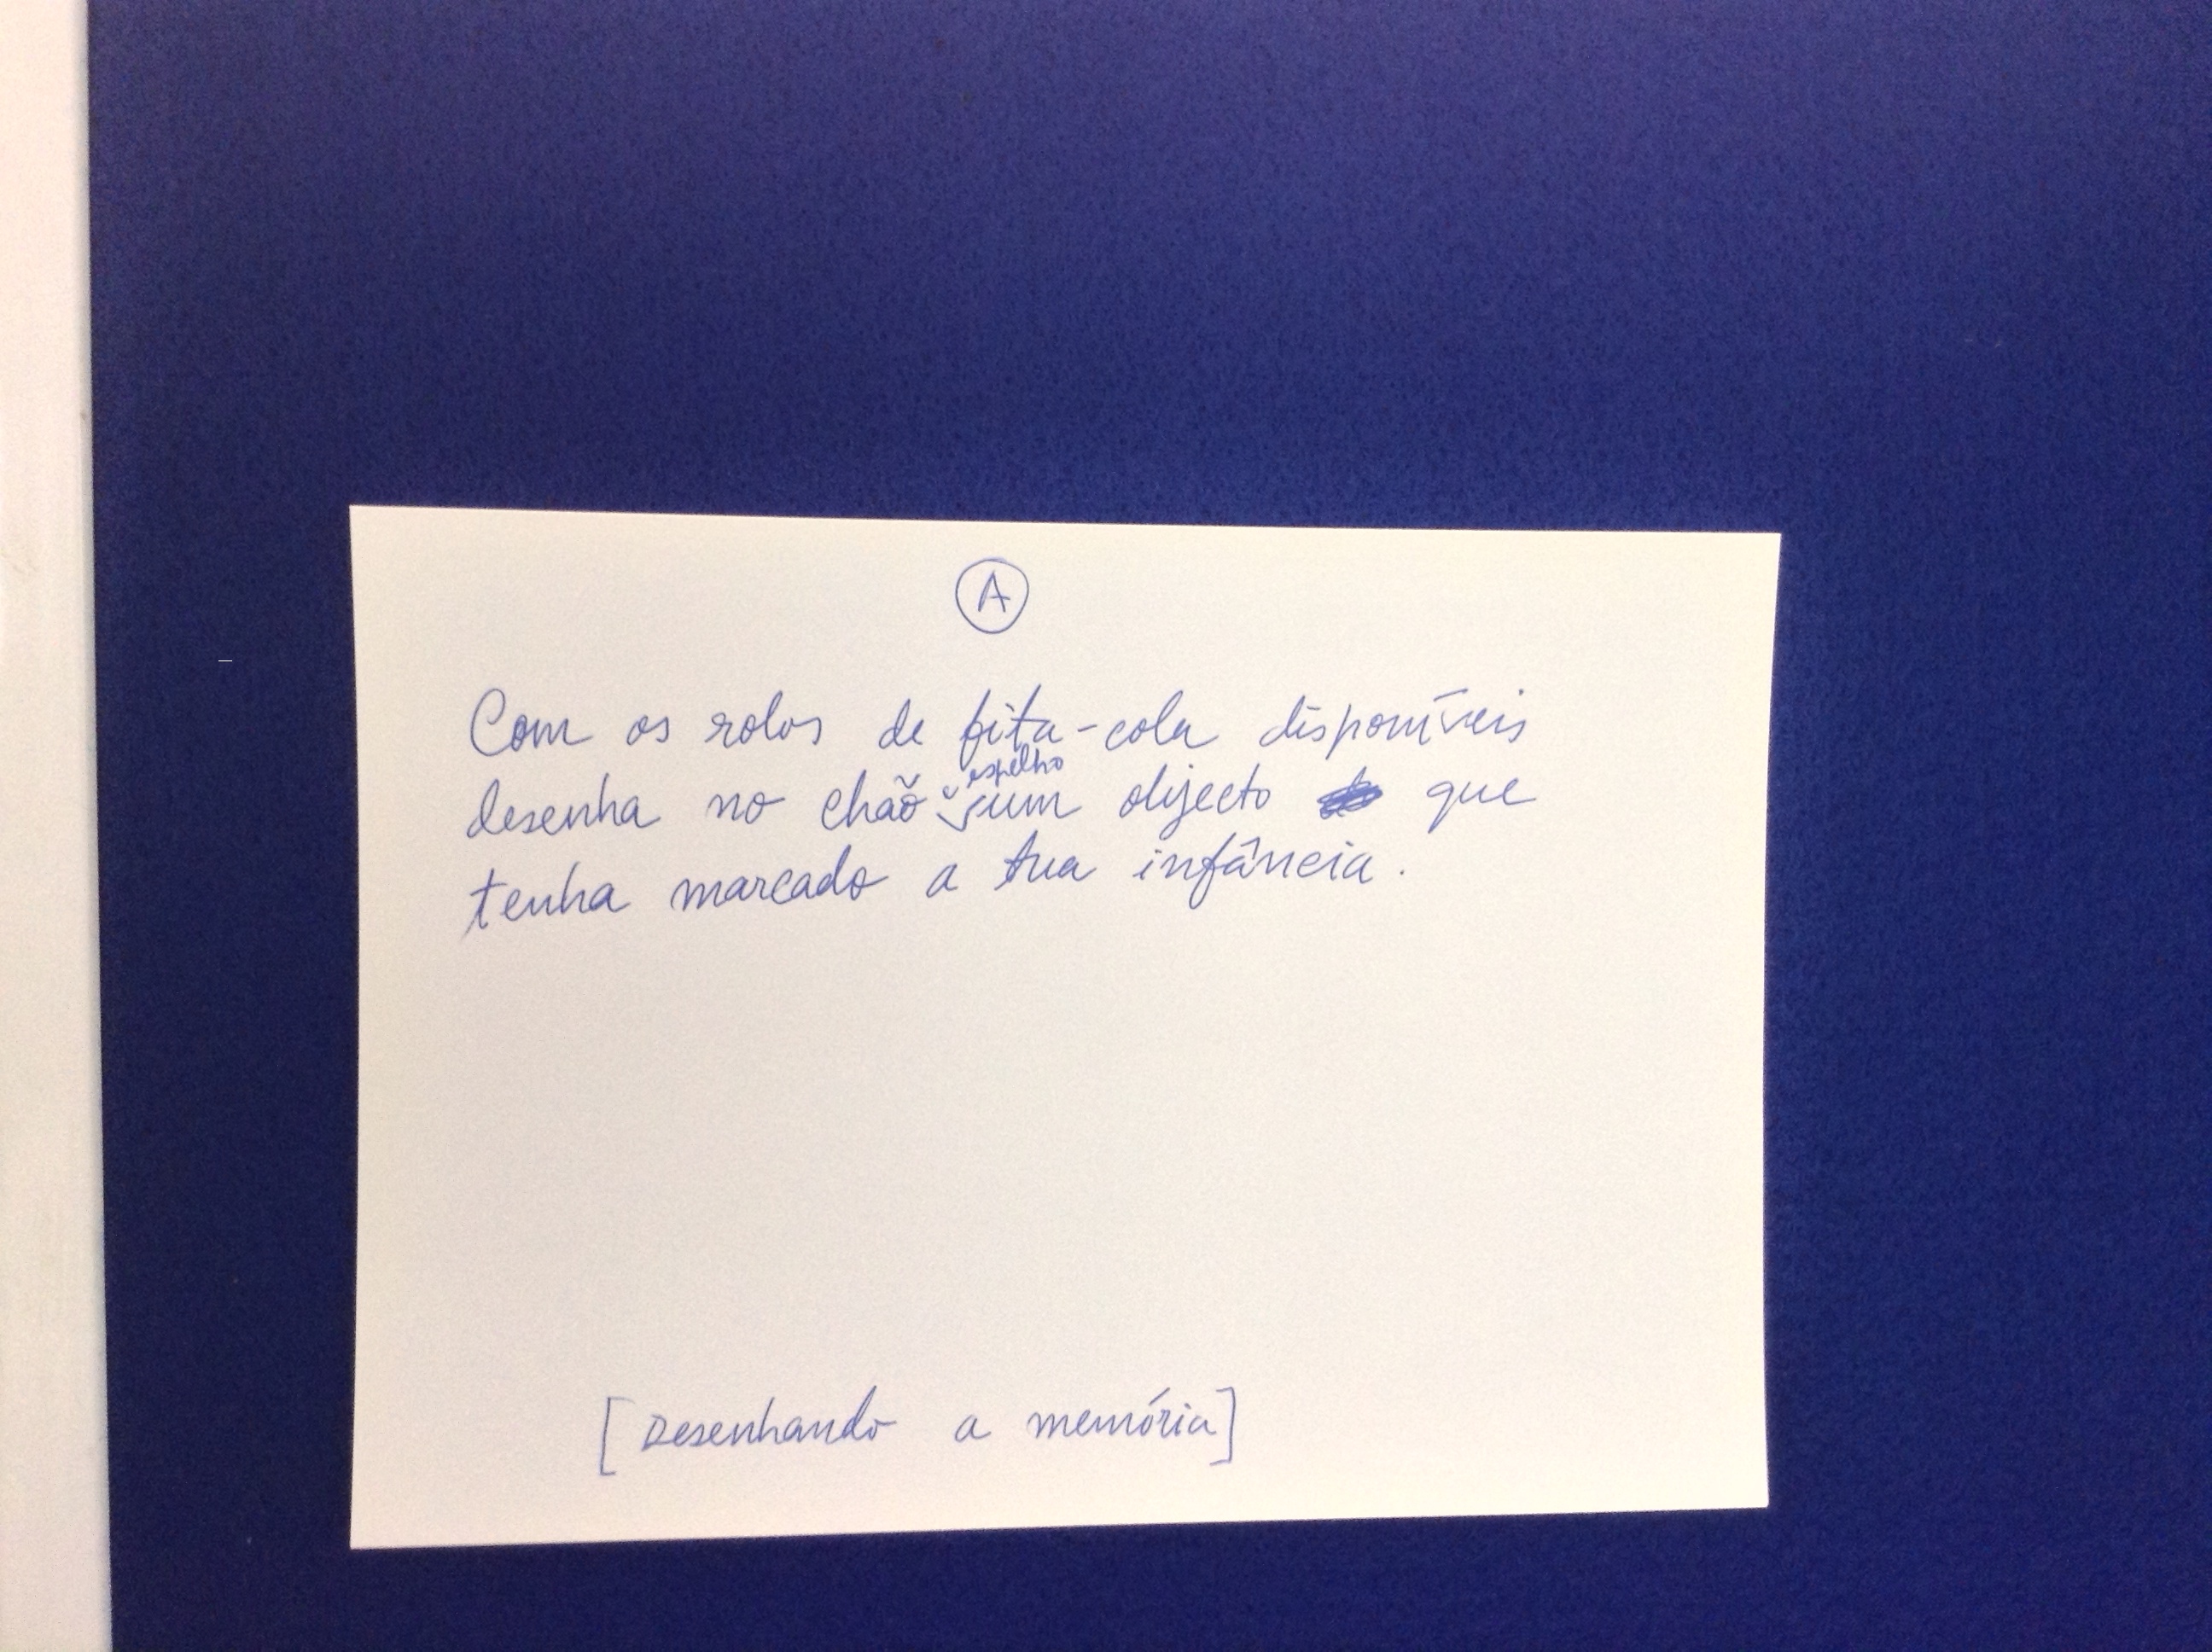 A
Com os rolos de fita-cola disponíveis
espelho
desenha no chão um objecto que
tenha marcado a tua infância.
[Desenhando a memória]